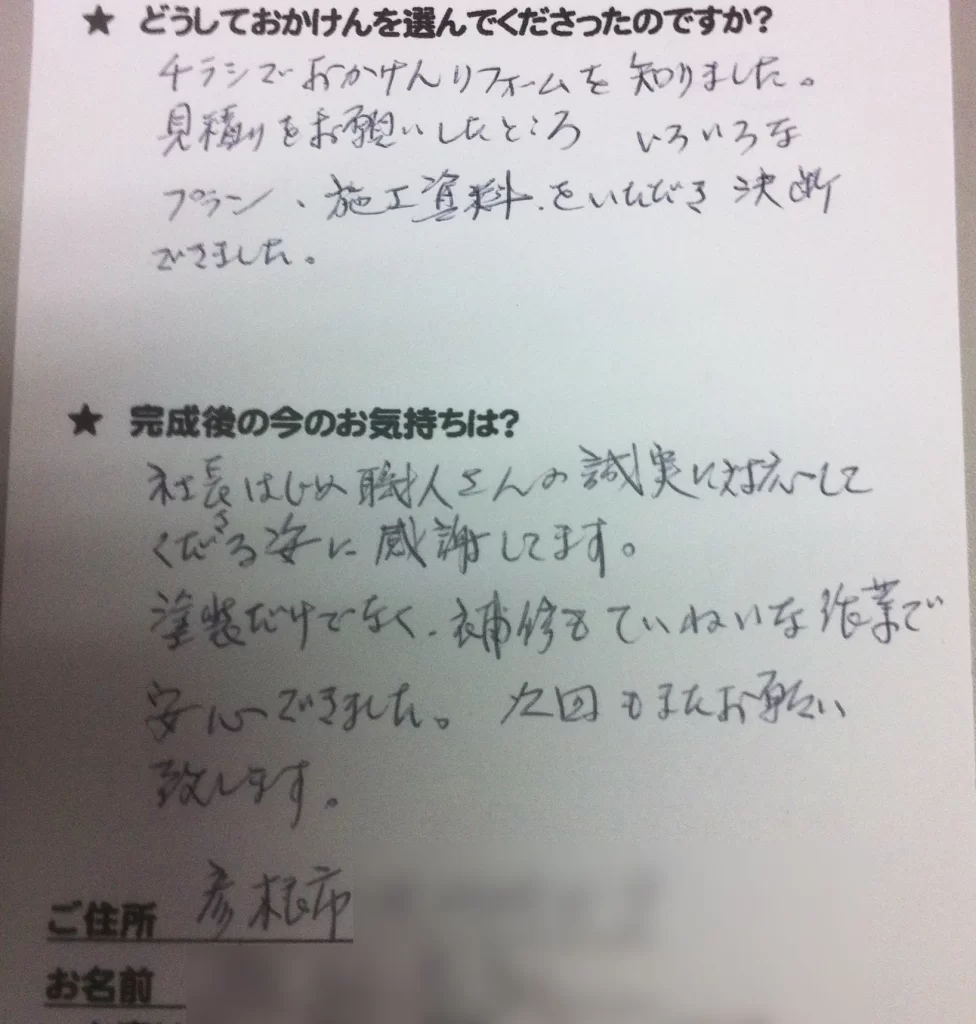 ★ どうしておかけんを選んでくださったのですか?
チラシでおかけんリフォームを 知りました。
見積りをお願いしたところ いろいろな
プラン、施工資料をいただき 決断
できました。
★ 完成後の今のお気持ちは?
社長はじめ職人さんの誠実に対応して
くださる姿に感謝してます。
塗装だけでなく、補修もていねいな作業で
安心できました。 次回もまたお願い
致します。
ご住所 彦根市
お名前